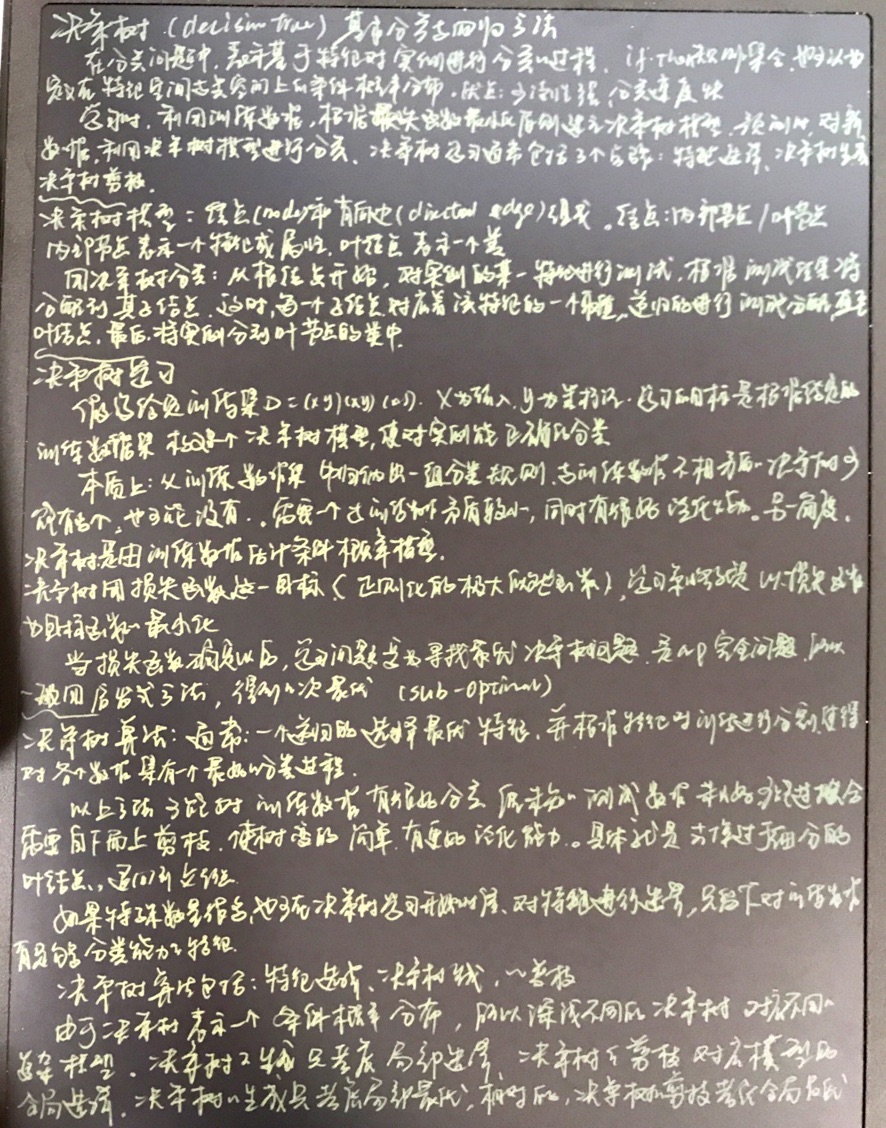 决策树 (decision tree) 基本分类与回归方法
在分类问题中, 表示基于特征对实例进行分类的过程. if-then规则集合, 也可认为
定义在特征空间与类空间上的条件概率分布. 优点: 可读性强, 分类速度快
学习时, 利用训练数据, 根据损失函数最小化原则建立决策树模型. 预测时, 对新
数据, 利用决策树模型进行分类. 决策树学习通常包括3个步骤: 特征选择, 决策树生成
决策树剪枝.
决策树模型: 结点(node)和有向边(directed edge)组成. 结点: 内部节点/叶节点
内部节点表示一个特征或属性. 叶结点表示一个类
用决策树分类: 从根结点开始, 对实例的某一特征进行测试, 根据测试结果将
分配到其子结点. 这时, 每一个子结点对应着该特征的一个取值, 递归的进行测试分配, 直至
叶结点. 最后, 将实例分到叶节点的类中.
决策树学习
假设给定训练集D=(xy)(xy)( ). X为输入, y为类标记. 学习的目标是根据给定的
训练数据集构建一个决策树模型, 使对实例能正确的分类
本质上: 从训练数据集中归纳出一组分类规则, 与训练数据不相矛盾的决策树可
能有多个, 也可能没有. 需要一个与训练数据矛盾较小, 同时有很好泛化能力. 另一角度,
决策树是由训练数据估计条件概率模型.
决策树用损失函数这一目标(正则化的极大似然函数), 学习策略是以损失函数
为目标函数的最小化
当损失函数确定以后, 学习问题变为寻找最优决策树问题. 是np完全问题.
一般用启发式方法, 得到的次最优 (sub-optimal)
决策树算法: 通常: 一个递归的选择最优特征, 并根据特征对训练进行分割, 使得
对各个数据集有一个最好的分类过程.
以上方法可能对训练数据有很好分类 但未知的测试数据并不好 过拟合
需要自下而上剪枝, 使树变的简单, 有更好的泛化能力. 具体就是去掉过于细分的
叶结点, 退回到父结点
如果特征数量很多, 也可在决策树学习开始时候, 对特征进行选择, 只留下对训练数据
有足够分类能力的特征.
决策树算法包括: 特征选择, 决策树生成, 的剪枝
由于决策树表示一个条件概率分布, 所以深浅不同的决策树对应不同的
复杂模型. 决策树的生成只考虑局部选择, 决策树的剪枝对应模型的
全局选择. 决策树的生成只考虑局部最优, 相对的, 决策树的剪枝考虑全局最优